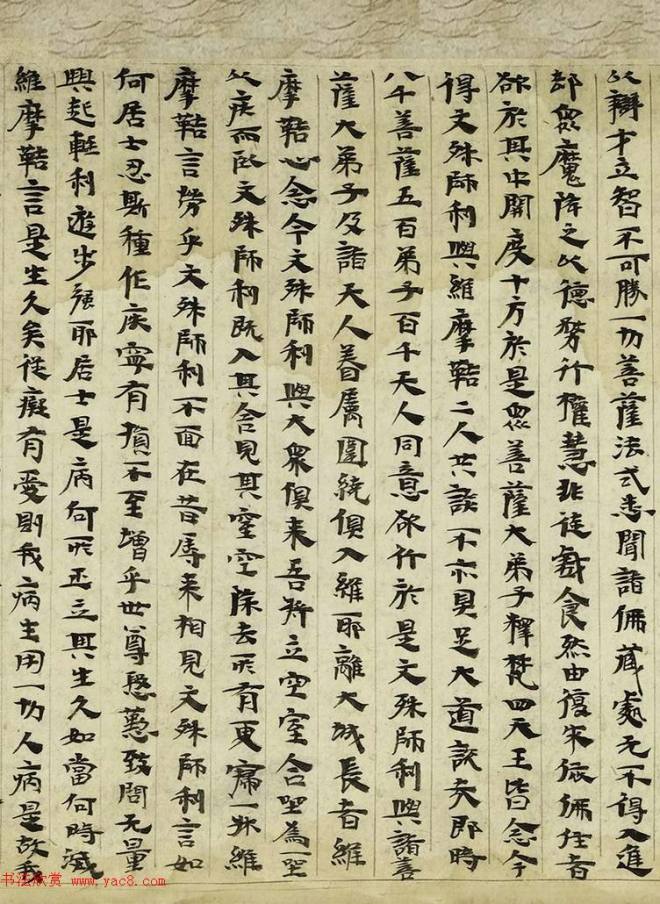 以辯才立智不可勝一切菩薩法式悉聞諸佛藏處无不得入進
却眾魔降之以德務行權慧非徒戲食然由復求依佛住者
欲於其中開度十方於是眾菩薩大弟子釋梵四天王皆念今
得文殊師利與維摩鞊二人共談不亦具足大道說矣即時
八千菩薩五百弟子百千天人同意欲行於是文殊師利與諸菩
薩大弟子及諸天人眷屬圍繞俱入維耶離大城長者維
摩鞊心念今文殊師利與大眾俱来吾將立空室合坐為一坐
以疾而臥文殊師利既入其舍見其室空除去所有更寢一牀維
摩鞊言勞乎文殊師利不面在昔辱来相見文殊師利言如
何居士忍斯種作疾寧有損不至增乎世尊慇懃致問无量
興起輕利遊步強耶居士是病何所正立其生久如當何時滅
維摩鞊言是生久矣從癡有愛則我病生用一切人病是故我
书法欣赏 www.yac8.com